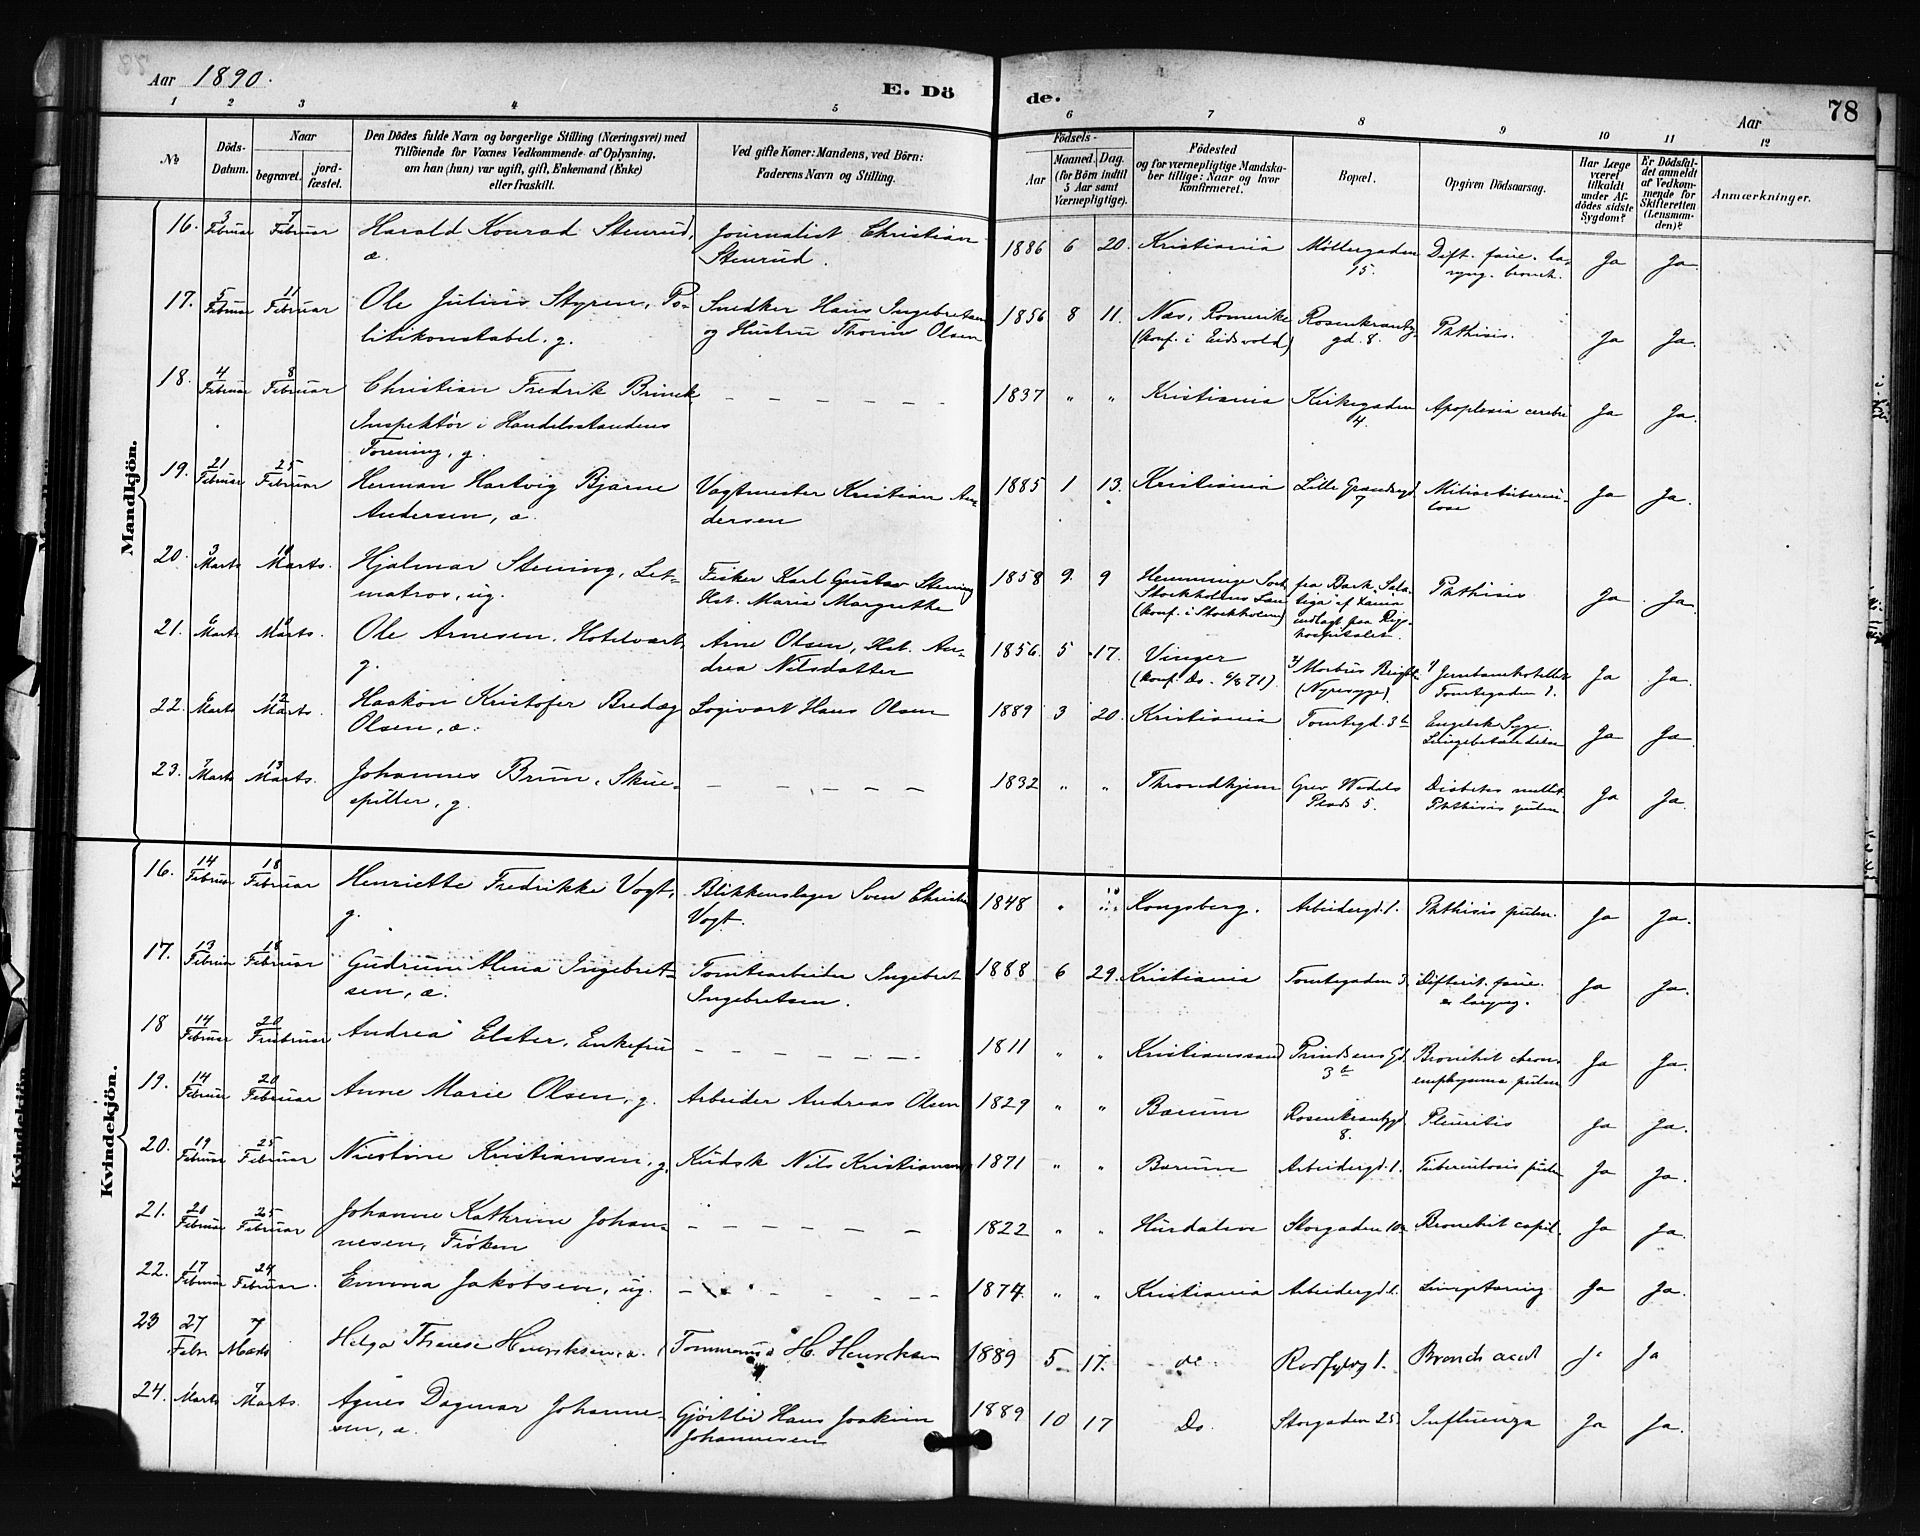 Aar 1890. E. Dö de. Aar 78
1 2 3 4 5 6 7 8 9 10 11 12
№ Döds-Datum. Naar begravet. jordfæstet. Den Dödes fulde Navn og borgerlige Stilling (Næringsvei) med Tilföiende for Voxnes Vedkommende af Oplysning, om han (hun) var ugift, gift, Enkemand (Enke) eller fraskilt. Ved gifte Koner: Mandens, ved Börn: Faderens Navn og Stilling. Födsels- Aar Maaned. Dag. (for Börn indtil 5 Aar samt Værnepligtige). Födested og for værnepligtige Mandskaber tillige: Naar og hvor konfirmeret. Bopæl. Opgiven Dödsaarsag. Har Læge været tilkaldt under Afdödes sidste Sygdom? Er Dödsfaldet anmeldt af Vedkommende for Skifteretten (Lensmanden)? Anmærkninger.
Mandkjön.
16. 3 Februar 7 Februar Harald Konrad Stenrud, Journalist Christian 1886 6 20. Kristiania Möllergaden Dift. fauc. la- Ja Ja.
æ. Stenrud. 15. ryng. bronch.
17. 5 Februar 11 Februar Ole Julius Styren, Po- Snedker Hans Ingebretsen 1856 8 11. Næs, Romerike Rosenkrantz- Phthisis. Ja Ja.
litikonstabel. g. og Hustru Thorine Olsen (konf. i Eidsvold) gd. 8.
18. 4 Februar 8 Februar Christian Fredrik Brinck – – – – – – 1837 " " Kristiania Kirkegaden Apoplexia cerebri Ja Ja.
Inspektör i Handelsstandens 14.
Forening, g.
19. 21 Februar 25 Februar Herman Hartvig Bjarne Vagtmester Kristian An- 1885 1 13. Kristiania Lille Grændsegd. Miliærtubercu- Ja Ja.
Andersen, æ. dersen 7 lose
20. 3 Marts 10 Marts. Hjalmar Stening, Let- Fisker Karl Gustav Stening 1858 9. 9 Hemminge Sort. fra Bark "Sala- Phthisis Ja Ja.
matros, ug. Hst. Maria Margrethe Stockholms Län tiga" af Xania
(konf. i Stockholm) indlagt paa Rigs-
hospitalet.
21. 6 Marts Marts. Ole Arnesen, Hotelvært, Arne Olsen, Hst. An- 1856. 5 17. Vinger Morbus Brightii Jernbanehotellet Ja Ja.
g. drea Nilsdatter (konf. Do. 6/8 71). (Nyresyge). Tomtegaden
22. 6 Marts 12 Marts. Haakon Kristofer Bredæg Logivært Hans Olsen 1889 3 20. Kristiania Tomtegd. 3b Engelsk Syge. Ja Ja.
Olsen, æ. Lungebetændelse
23. 7 Marts 13 Marts. Johannes Brun, Skue- – – – – – – 1832 " " Throndhjem Grev Wedels Diabetes mellit. Ja Ja.
spiller, g. Plads 5. Phthisis pulm.
Kvindekjön.
16. 14 Februar 18 Februar Henriette Fredrikke Vogt, Blikkenslager Sven Christian 1848 " Kongsberg. Arbeidergd. 1. Phthisis pulm. Ja Ja.
g. Vogt.
17. 13 Februar 18 Februar Gudrun Alma Ingebret- Tomtearbeider Ingebret 1888 6 29. Kristiania Tomtegaden 3. Difterit. fauc. Ja Ja.
sen, æ. Ingebretsen. e. laryng.
18 14 Februar 20 Frubruar Andrea Elster, Enkefru – – – – – – 1811 " " Kristianssand Prindsens Gd. Bronchit chron. Ja Ja.
3b emphysema pulm.
19. 14 Februar 20 Februar Anne Marie Olsen, g. Arbeider Andreas Olsen 1829 " " Bærum Rosenkrantzgd. Pleuritis Ja Ja.
8.
20. 19 Februar 25 Februar Nicoline Kristiansen, g. Kudsk Nils Kristiansen 1871 " " Bærum Arbeidergd. 1. Tuberculosis pulm. Ja Ja.
21. 20 Februar 25 Februar Johanne Kathrine Johan- – – – – – – 1822 " " Hurdalen Storgaden 10a Bronchit capil. Ja Ja.
nesen, Fröken
22. 17 Februar 24 Februar. Emma Jakobsen, ug. – – – – – – 1874. " " Kristiania Arbeidergd. 1. Ja Ja.
23 27 Febr. 7 Marts Helga Therese Henriksen, æ. H. Henriksen 1889 5 17. do. 1. Bronch. acut Ja Ja
24. 1 Marts 7 Marts. Agnes Dagmar Johanne- Gjörtler Hans Joakim 1889 10 17 Do. Storgaden 25. Influenza Ja Ja.
sen, æ. Johannesen